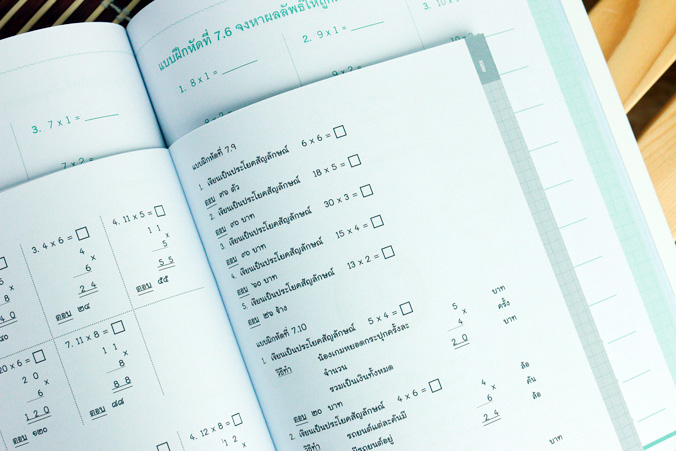 แบบฝึกหัดที่ 7.6 จงหาผลลัพธ์ให้ถูก
1. 8 x 1 =
2. 9 x 1 =
3. 10 x
3. 7 x 1 =
7 x 2 =
8 x 2 =
9 x 2 =
3. 4 x 6 = □
4 x
6
2 4
ตอบ ๒๔
4. 11 x 5 = □
1 1 x
5
5 5
ตอบ ๕๕
5 x
8
4 0
20 x 6 = □
2 0 x
6
1 2 0
ตอบ ๑๒๐
7. 11 x 8 = □
1 1 x
8
8 8
ตอบ ๘๘
4. 12 x 8 = □
1 2 x
แบบฝึกหัดที่ 7.9
1. เขียนเป็นประโยคสัญลักษณ์ 6 x 6 = □
ตอบ ๓๖ ตัว
2. เขียนเป็นประโยคสัญลักษณ์ 18 x 5 = □
ตอบ ๙๐ บาท
3. เขียนเป็นประโยคสัญลักษณ์ 30 x 3 = □
ตอบ ๙๐ บาท
4. เขียนเป็นประโยคสัญลักษณ์ 15 x 4 = □
ตอบ ๖๐ บาท
5. เขียนเป็นประโยคสัญลักษณ์ 13 x 2 = □
ตอบ ๒๖ จ้าง
แบบฝึกหัดที่ 7.10
1. เขียนเป็นประโยคสัญลักษณ์ 5 x 4 = □
วิธีทำ น้องเกมหยอดกระปุกครั้งละ 5 บาท
จำนวน 4 x ครั้ง
รวมเป็นเงินทั้งหมด 2 0 บาท
ตอบ ๒๐ บาท
2. เขียนเป็นประโยคสัญลักษณ์ 4 x 6 = □
วิธีทำ รถยนต์แต่ละคันมี 4 x ล้อ
มีรถยนต์อยู่ 6 คัน
2 4 ล้อ
บาท